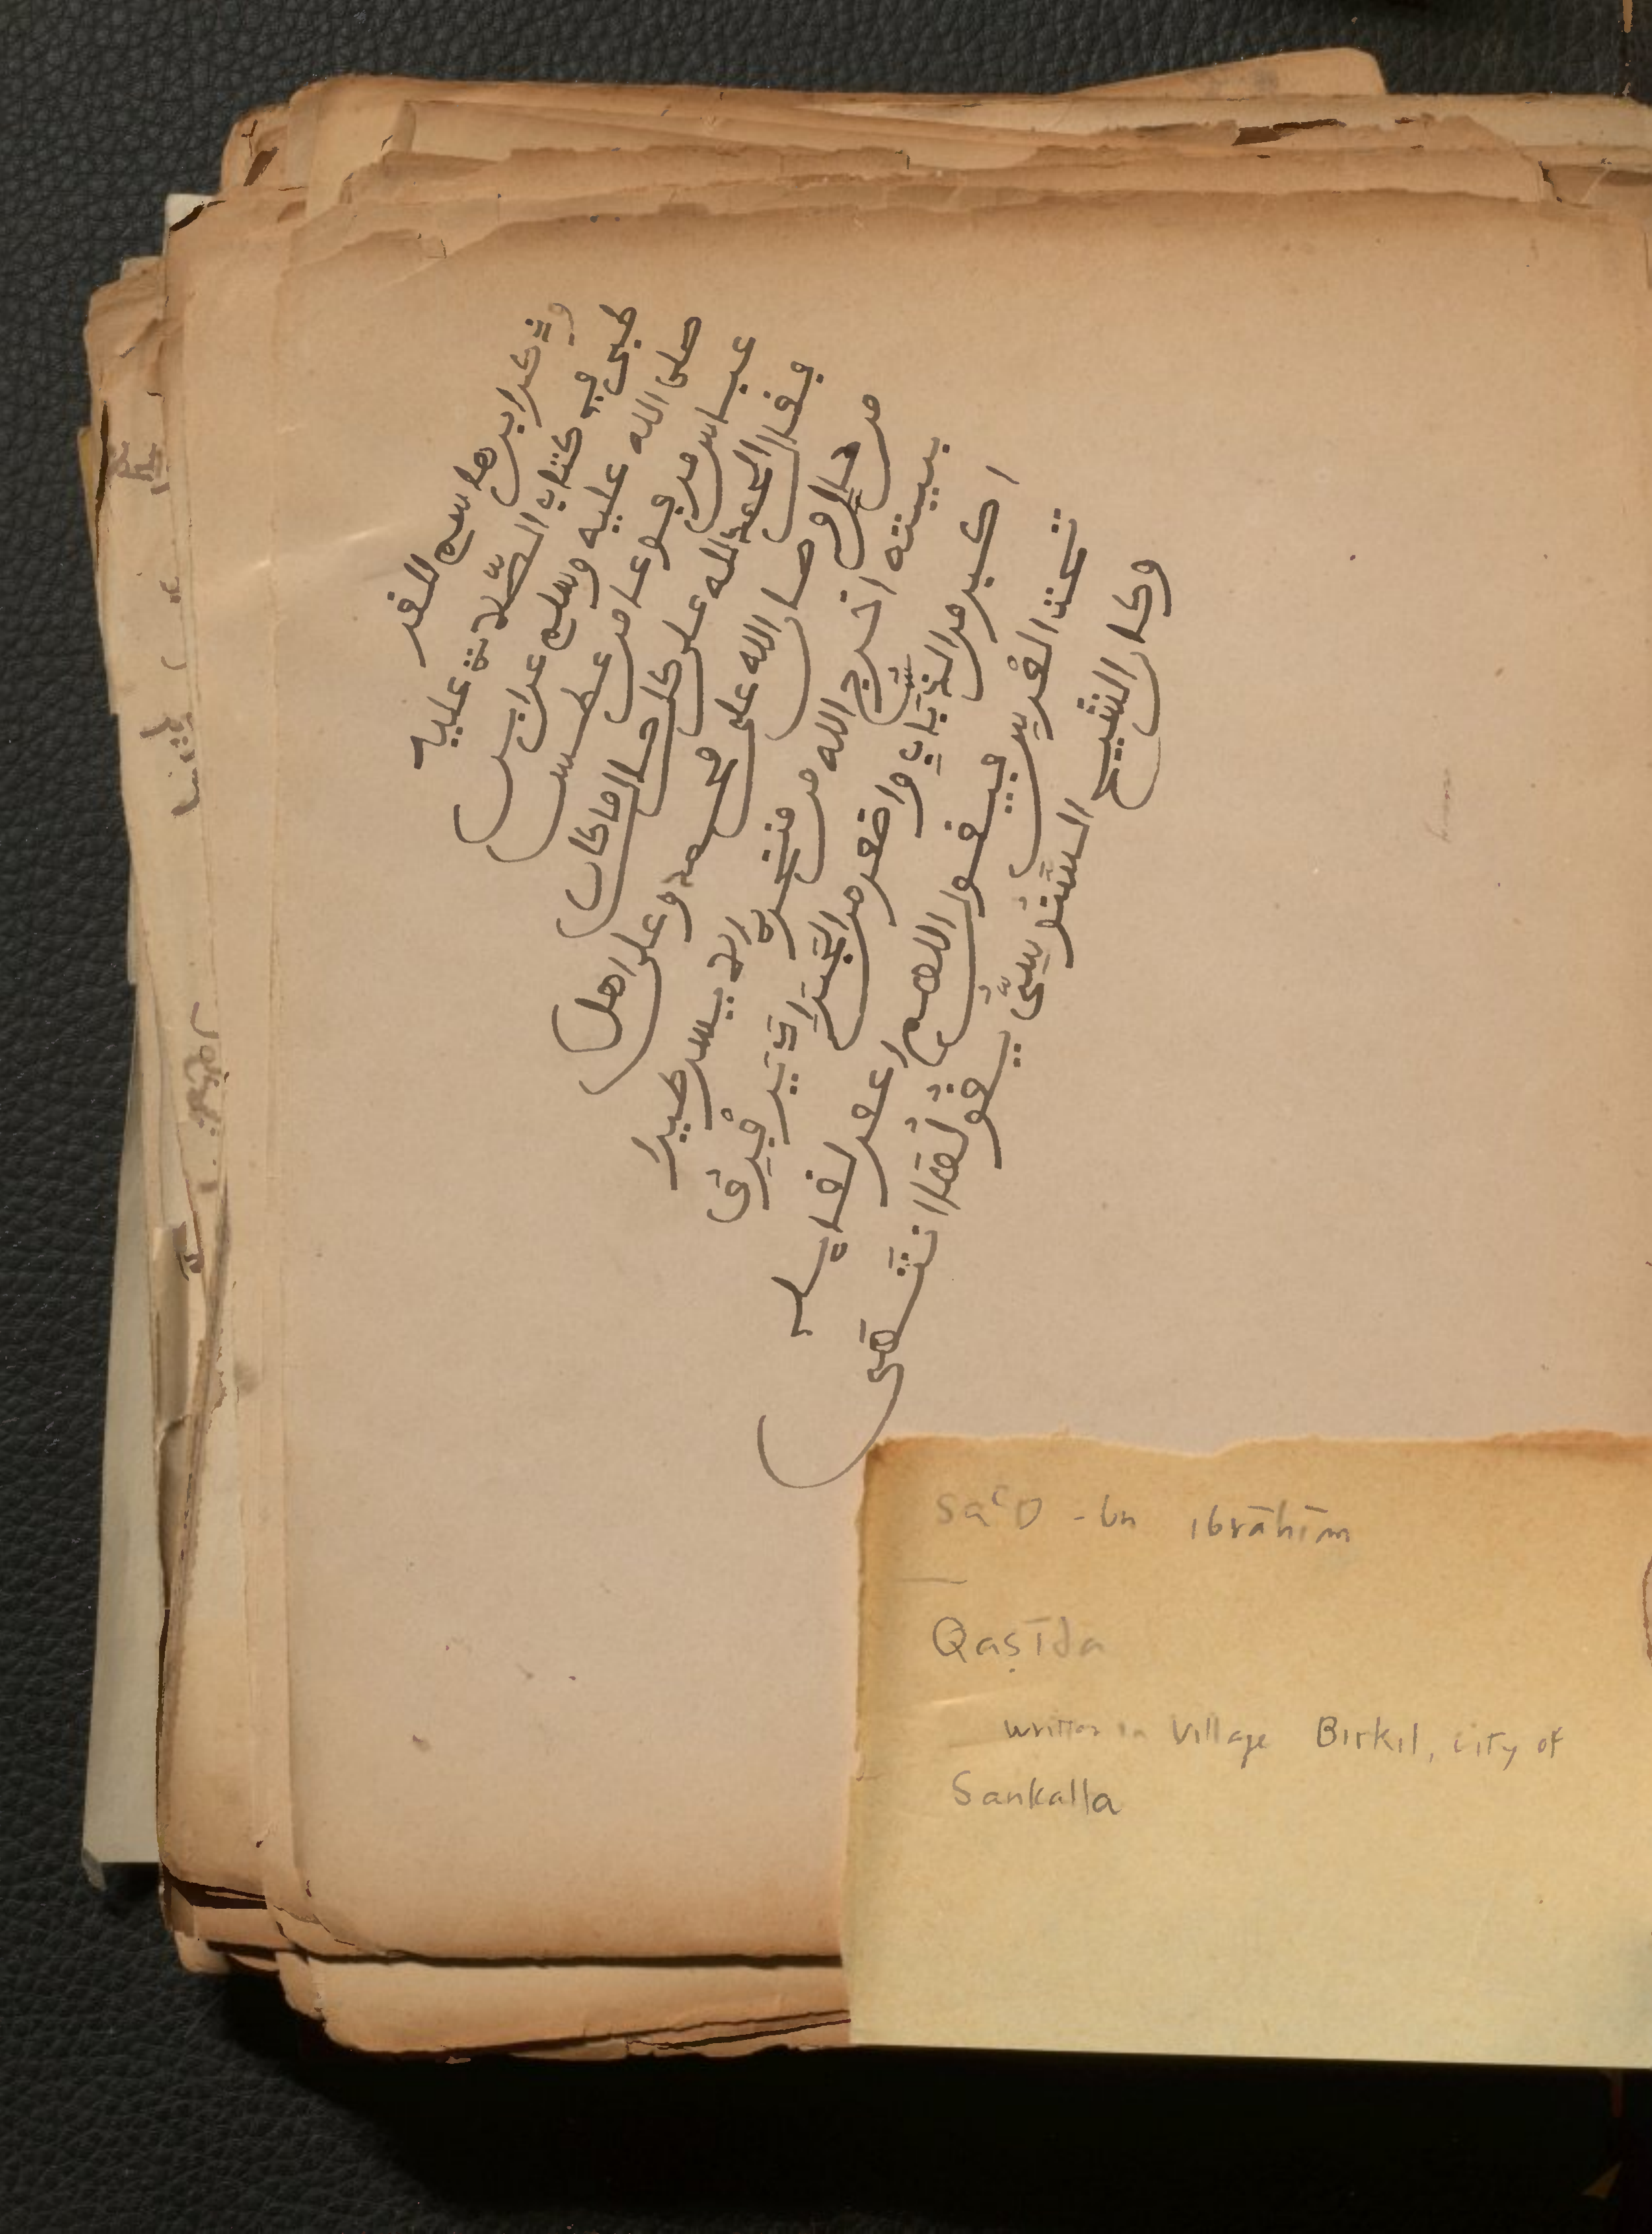 وذكر ابن هاسم القر
طبى في كتاب الصّلاة عليه
صلى الله عليه وسلم عن ابن
عباس مرفوعا من عطس
فقال الحمد لله على كل حال ما كان
من حال وصل الله على محمد وعلى اهل
بيته اخرج الله من منخره الايسر طيرا
اكبر من الذباب واصغر من الجراد يرفرف
تحت العرش فيقول اللهم اغفر لقايله
وكان الشيخ السنوسيّ يقولها انتهى
Saʿd - bn ibrāhīm
Qaṣīda
written in Village Birkil, city of
Sankalla